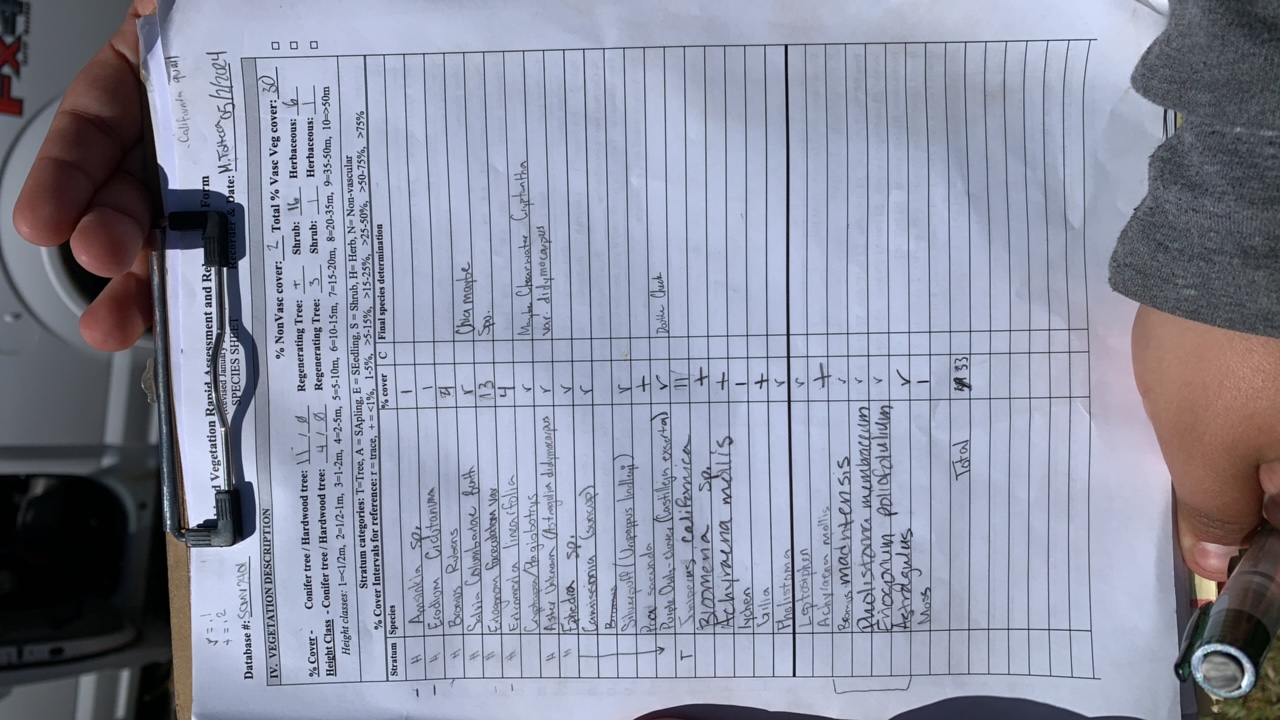 California quail
r = .1
+ = .2
Vegetation Rapid Assessment and Re Form
Revised January
SPECIES SHEET
Database #:
Recorder & Date: 05/2/2024
IV. VEGETATION DESCRIPTION
% NonVasc cover: 2 Total % Vasc Veg cover: 30
% Cover - Conifer tree / Hardwood tree: 11 / 0 Regenerating Tree: + Shrub: 16 Herbaceous: 6
Height Class - Conifer tree / Hardwood tree: 4 / 0 Regenerating Tree: 3 Shrub: 1 Herbaceous: 1
Height classes: 1=<1/2m, 2=1/2-1m, 3=1-2m, 4=2-5m, 5=5-10m, 6=10-15m, 7=15-20m, 8=20-35m, 9=35-50m, 10=>50m
Stratum categories: T=Tree, A = SApling, E = SEedling, S = Shrub, H= Herb, N= Non-vascular
% Cover Intervals for reference: r = trace, + = <1%, 1-5%, >5-15%, >15-25%, >25-50%, >50-75%, >75%
Stratum Species % cover C Final species determination
H Amsinkia sp. 1
H Erodium Cicutarium 1
H Bromus Rubens
H Salvia Columbariae r Chia maybe
H Eriogonum 13 Spp.
H Ericameria linearifolia 4
Cryptantha/Plagiobotrys r Maybe Clearwater Cryptantha
H Aster Unknown (Astragalus didymocarpus r var. didymocarpus
H Ephedra sp. r
Camissonia r
Bromus
Silverpuff (Uropappus lindleyi) r
Poa secunda +
Purple Owl-clover (Castilleja exserta) r Dottie Check
T Juniperus californica 11
Bloomeria sp. +
Achyraena mollis +
Lychen 1
Gilia +
Pholistoma r
r
Achyraena mollis +
Bromus madritensis r
Pholistoma membranaceum r
Eriogonum poliofolulium r
Astralgulus r
Moss 1
Total 33